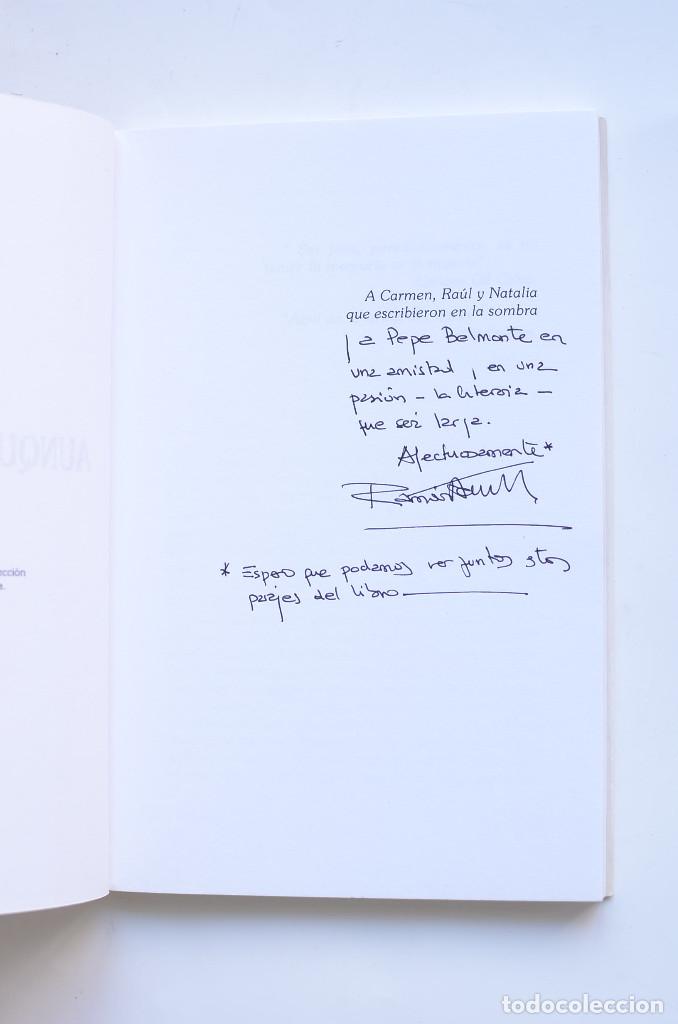 AUNQU
cción
A Carmen, Raúl y Natalia
que escribieron en la sombra
y a Pepe Belmonte en
una amistad, en una
pasión - la literaria -
que será larga.
Afectuosamente*
* Espero que podamos ver juntos estos
parajes del libro
todocoleccion